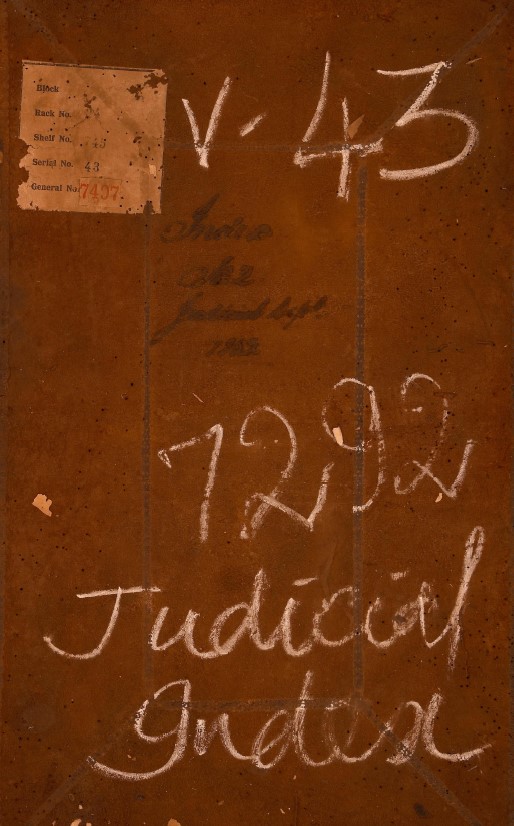 Block
Rack No.
Shelf No.
Serial No. 43
General No. 7497
V-43
Judicial Dept.
7292
Judicial
Index